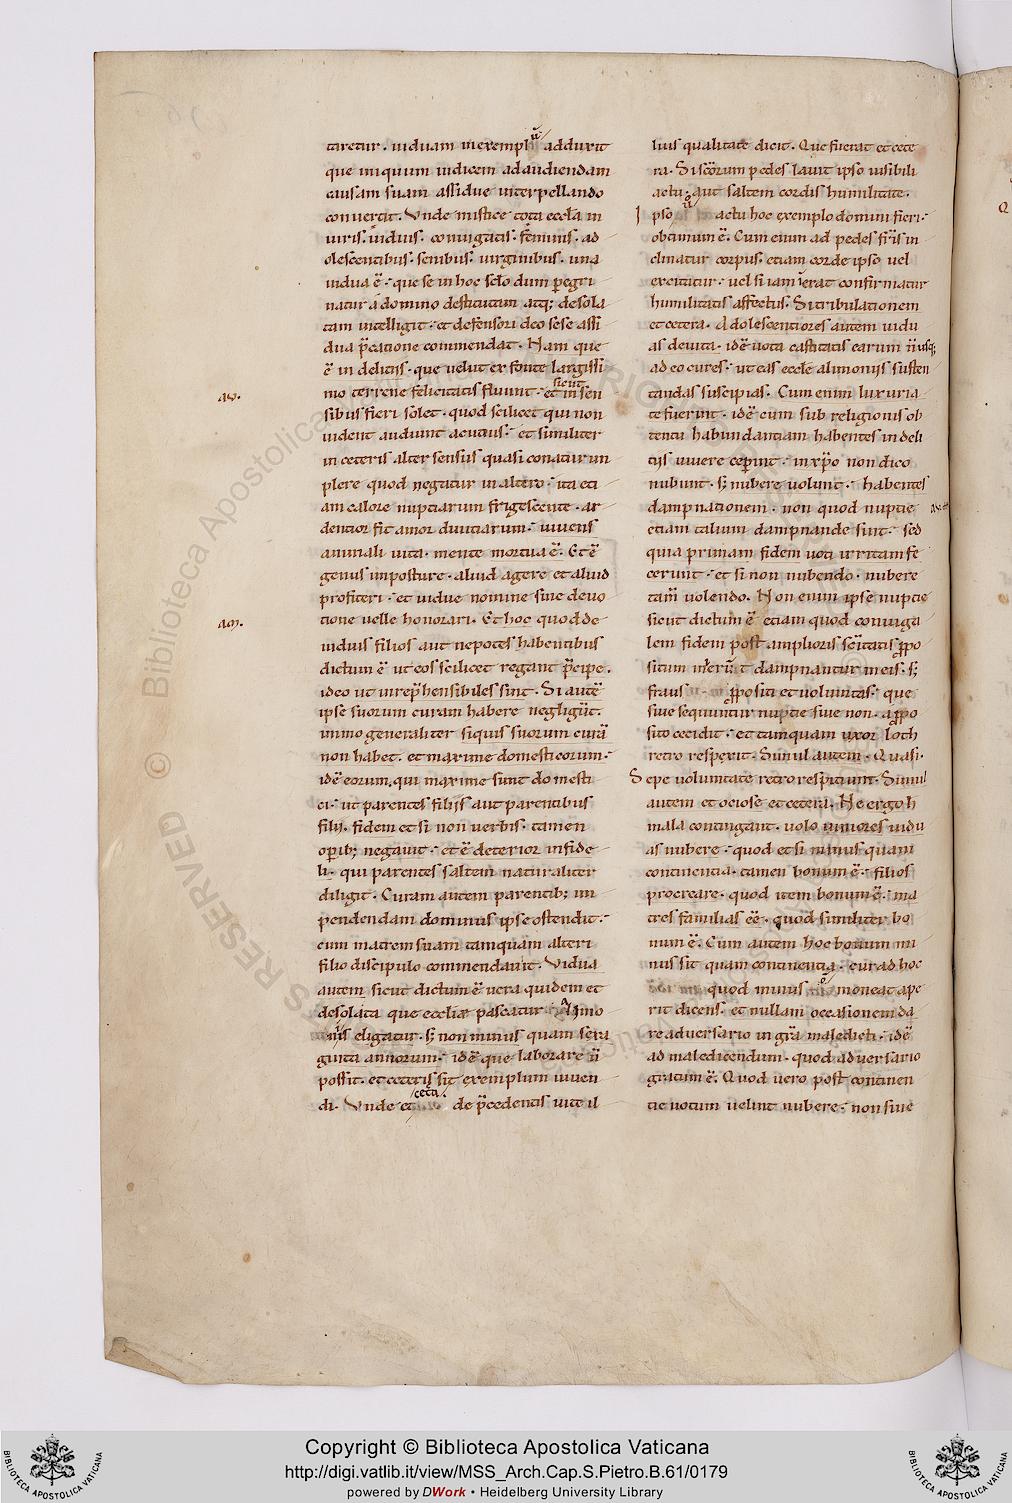 taretur. uiduam in exemplũ adduxit
que iniquum iudicem ad audiendam
causam suam assidue interpellando
conuertit. Vnde mistice tota eccła in
uiris. uiduis. coniugatis. feminis. ad
olescentibus. senibus. uirginibus. una
uidua ē. que se in hoc sclo dum pegri
natur a domino destitutam atq; desola
tam intelligit. et defensori deo sese assi
dua p̃catione commendat. Nam que
ē in delitijs. que uelut ex fonte largissi
mo terrene felicitatis fluunt. et sicut in sen
sibus fieri solet. quod scilicet qui non
uident audiunt acutius. et similiter
in ceteris alter sensus quasi conatur im
plere quod negatur in altero. ita eti
am calore nuptiarum frigescente. ar
dentior fit amor diuitiarum. uiuens
animali uita. mente mortua ē. Et ē
genus imposture. aliud agere et aliud
profiteri. et uidue nomine sine deuo
tione uelle honorari. Et hoc quod de
uiduis filios aut nepotes habentibus
dictum ē ut eos scilicet regant p̃cipe.
ideo ut inrep̃hensibiles sint. Si autē
ipse suorum curam habere negligũt.
immo generaliter siquis suorum curã
non habet. et maxime domesticorum.
idē eorum. qui maxime sunt domesti
ci. ut parentes filijs aut parentibus
filij. fidem et si non uerbis. tamen
opib; negauit. et ē deterior infide
li. qui parentes saltem naturaliter
diligit. Curam autem parentib; im
pendendam dominus ipse ostendit.
cum matrem suam tamquam alteri
filio discipulo commendauit. Vidua
autem sicut dictum ē uera quidem et
desolata que ecclia pascatur
eligatur. s; non minus quam sexa
ginta annorum. idē que laborare ñ
possit. et ceteris sit exemplum uiuen
di. Vnde et cetera. de p̃cedentis uite il
lius qualitate dicit. Que fuerat et cete
ra. Si sc̃orum pedes lauit ipso uisibili
actu. aut saltem cordis humilitate.
Ipso actu hoc exemplo domini fieri.
obtimum ē. Cum enim ad pedes fr̃is in
clinatur corpus. etiam corde ipso uel
excitatur. uel si iam ierat confirmatur
humilitatis affectus. Si tribulationem
et cetera. Adolescentiores autem uidu
as deuita. idē uota castitatis earum ñ usq;
ad eo cures. ut eas eccle alimonijs susten
tandas suscipias. Cum enim luxuria
te fuerint. idē cum sub religionis ob
tentu habundantiam habentes in deli
tijs uiuere ceperint. in xp̃o non dico
nubunt. s; nubere uolunt. habentes
dampnationem. non quod nuptie
etiam talium dampnande sint. sed
quia primam fidem uoti irritam fe
cerunt. et si non nubendo. nubere
tam̃ uolendo. Non enim ipse nuptie
sicut dictum ē etiam quod coniuga
lem fidem post amplioris sc̃itatis ppo
situm dampnantur in eis. s;
fraus ppositi et uoluntas. que
siue sequuntur nuptie siue non. a ppo
sito cecidit. et tamquam uxor loth
retro respexit. Simul autem. Quasi.
Sepe uoluntate retro respitiunt. Simul
autem et ociose et cetera. Ne ergo h
mala contingant. uolo iuniores uidu
as nubere. quod et si minus quam
continentia. tamen bonum ē. filios
procreare. quod item bonum ē. ma
tres familias eē. quod similiter bo
num ē. Cum autem hoc bonum mi
nus sit quam continentia. cur ad hoc
quod minus moneat ape
rit dicens. et nullam occasionem da
re aduersario in grã maledicti. idē
ad maledicendum. quod aduersario
gratum ē. Quod uero post continen
tie uotum uelint nubere. non siue
aɢ.
am.
© Biblioteca Apostolica Vaticana
Copyright © Biblioteca Apostolica Vaticana
http://digi.vatlib.it/view/MSS_Arch.Cap.S.Pietro.B.61/0179
powered by DWork • Heidelberg University Library
BIBLIOTECA APOSTOLICA VATICANA
BIBLIOTECA APOSTOLICA VATICANA